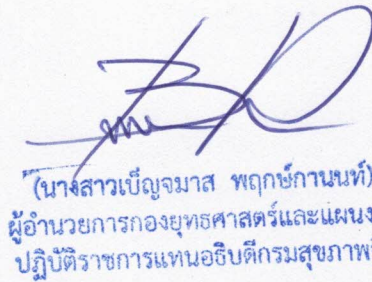 (นางสาวเบ็ญจมาส พฤกษ์กานนท์)
ผู้อำนวยการกองยุทธศาสตร์และแผนง
ปฏิบัติราชการแทนอธิบดีกรมสุขภาพ